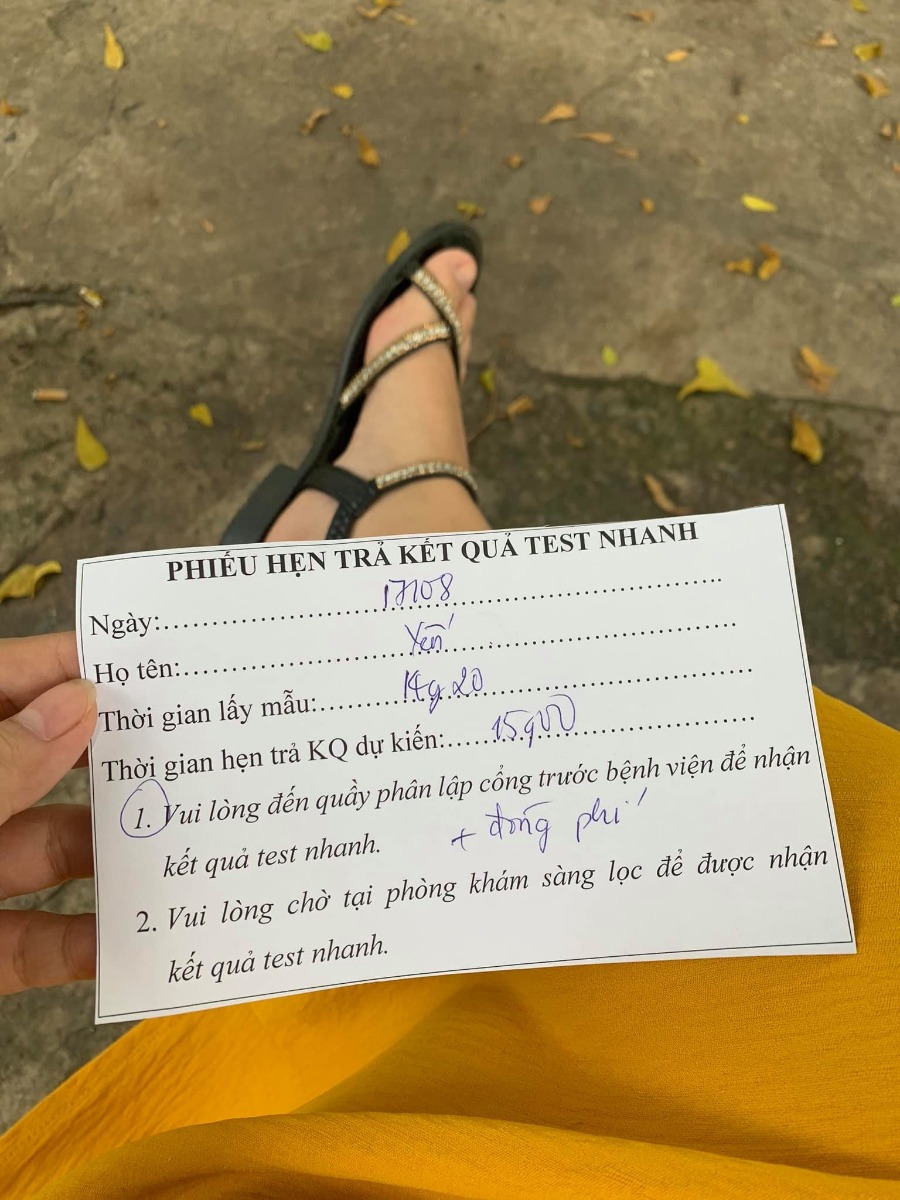 PHIẾU HẸN TRẢ KẾT QUẢ TEST NHANH
Ngày:................17/08................
Họ tên:................Yến................
Thời gian lấy mẫu:........14g20................
Thời gian hẹn trả KQ dự kiến:......15g00................
1. Vui lòng đến quầy phân lập cổng trước bệnh viện để nhận
kết quả test nhanh. + đóng phí
2. Vui lòng chờ tại phòng khám sàng lọc để được nhận
kết quả test nhanh.